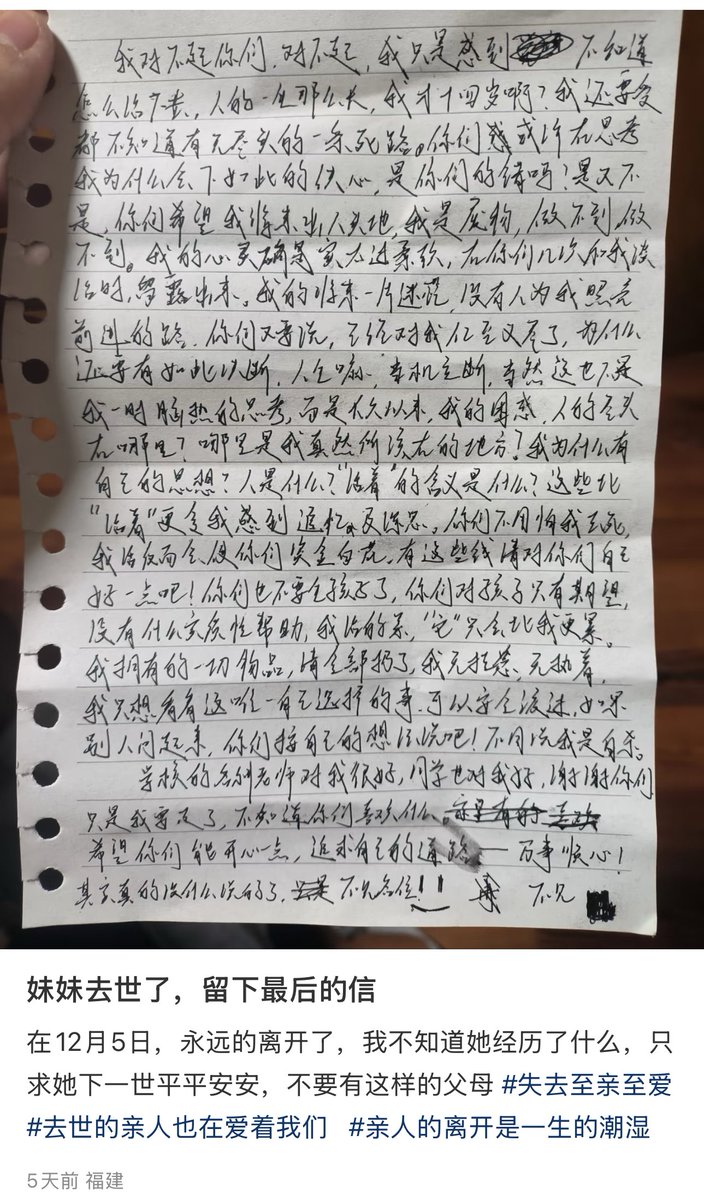 我对不起你们，对不起，我只是感到 不知道
怎么活下去，人的一生那么长，我才十四岁啊？我还要受
都不知道有无尽头的一条死路。你们或许在思考
我为什么会下如此的决心，是你们的错吗？是又不
是，你们希望我将来出人头地，我是废物，做不到，做
不到。我的心灵确是实太过柔软，在你们几次和我谈
话时，留露出来。我的将来一片迷茫，没有人为我照亮
前进的路，你们又要说，已经对我仁至义尽了，为什么
还要有如此决断，人生嘛，当机立断，当然这也不是
我一时脑热的思考，而是长久以来，我的困惑，人的尽头
在哪里？哪里是我真然所该在的地方？我为什么有
自己的思想？人是什么？“活着”的含义是什么？这些比
“活着”更令我感到 及深思，你们不用怕我去死，
我活反而会使你们 ，有这些钱请对你们自己
好一点吧！你们也不要生孩子了，你们对孩子只有期望，
没有什么实质性帮助，我活的累，“它”只会比我更累。
我拥有的一切物品，请全部扔了，我无挂念，无执着，
我只想看看这唯一自己选择的事，可以安全渡过，如果
别人问起来，你们按自己的想法说吧！不用说我是自杀。
学校的各别老师对我很好，同学也对我好，谢谢你们
只是我要没了，不知道你们喜欢什么
希望你们能开心一点，追求自己的道路——万事顺心！
其实真的没什么说的了， 不见各位！！ 不见
妹妹去世了，留下最后的信
在12月5日，永远的离开了，我不知道她经历了什么，只
求她下一世平平安安，不要有这样的父母 #失去至亲至爱
#去世的亲人也在爱着我们 #亲人的离开是一生的潮湿
5天前 福建